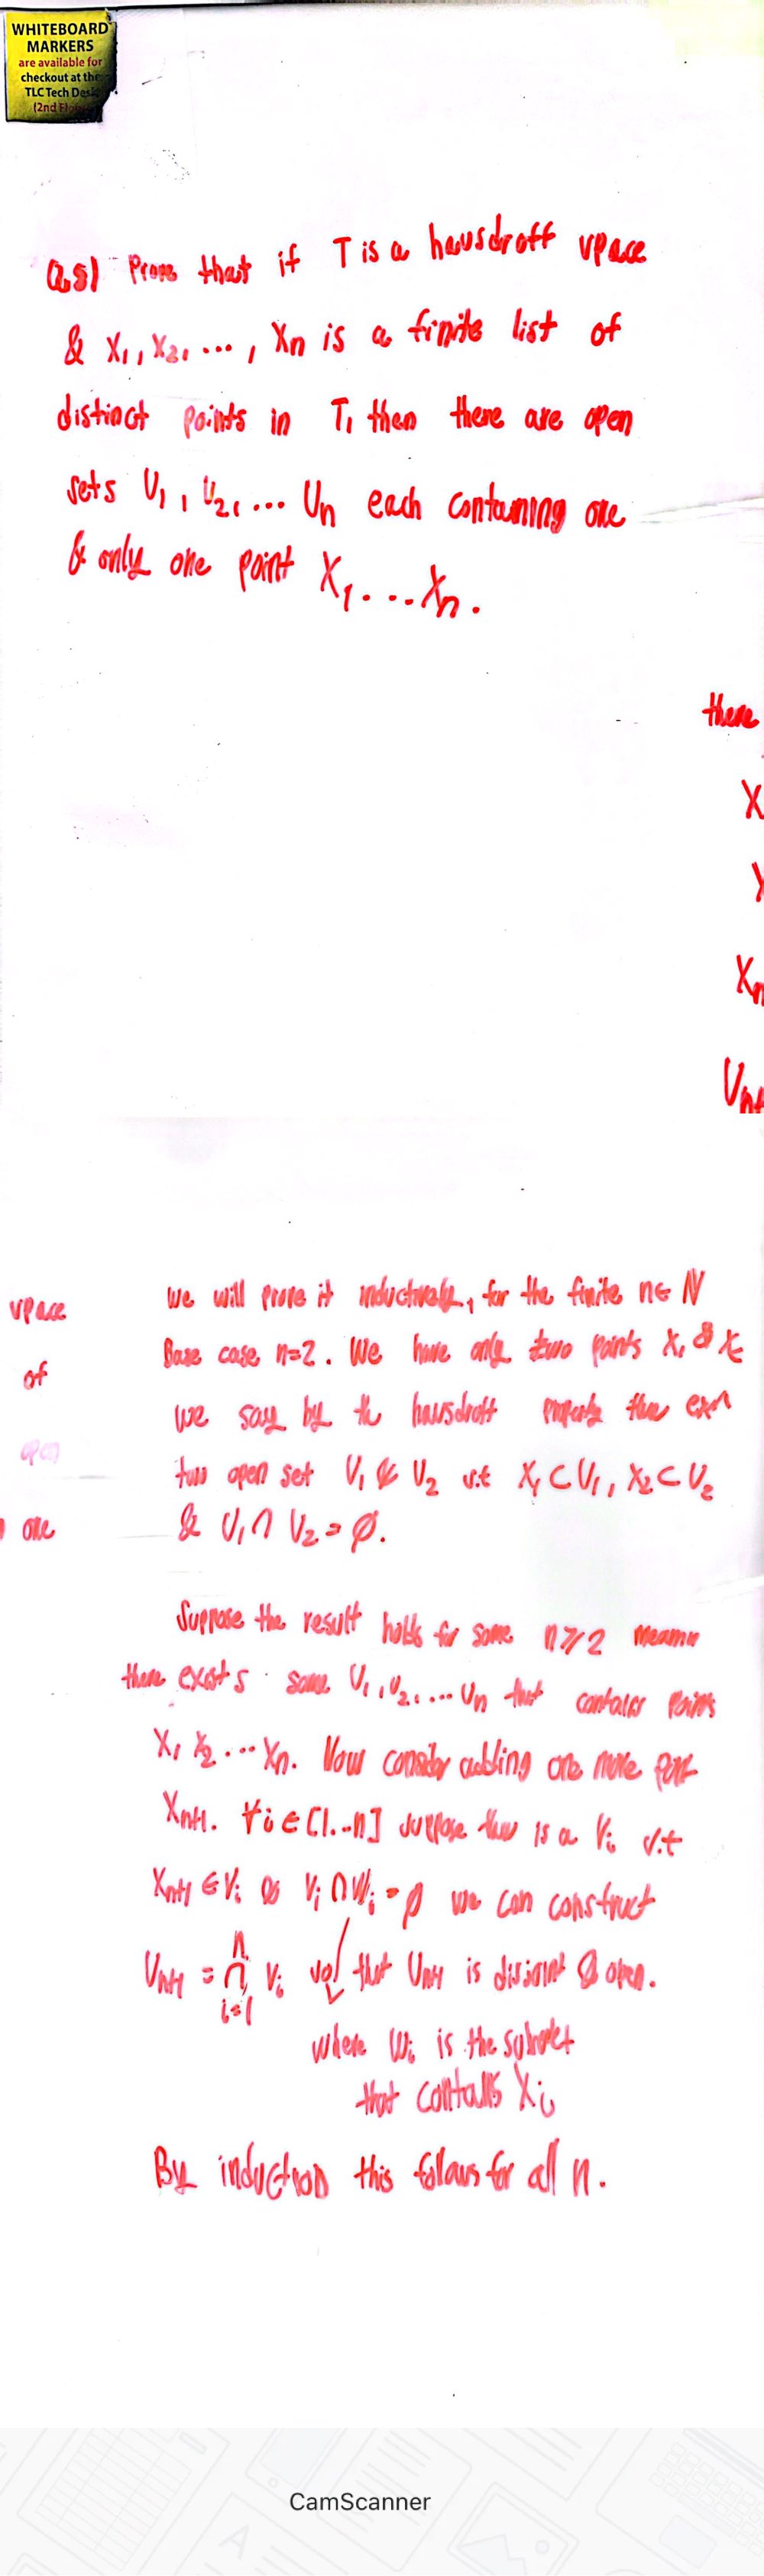 WHITEBOARD
MARKERS
are available for
checkout at the
TLC Tech Desk
(2nd Floor)
Q.5) Prove that if T is a hausdroff space
& X1, X2, ..., Xn is a finite list of
distinct points in T, then there are open
sets U1, U2, ... Un each containing one
& only one point X1....Xn.
there
X
X
Xn
Un+
space
of
open
one
we will prove it inductively, for the finite n∈ℕ
Base case n=2. We have only two points X1 & X2
we say by the hausdroff property there exist
two open set U1 & U2 s.t X1⊂U1, X2⊂U2
& U1∩U2=∅.
Suppose the result holds for some n≥2
there exists some U1, U2, ... Un that contains points
X1 X2 ... Xn. Now consider adding one more point
Xn+1. ∀i∈[1..n] suppose there is a Vi s.t
Xn+1∈Vi & Vi∩Wi=∅ we can construct
Un+1 = ⋂ᵢ₌₁ⁿ Vi that Un+1 is disjoint & open.
where Wi is the subset
that contains Xi
By induction this follows for all n.
CamScanner